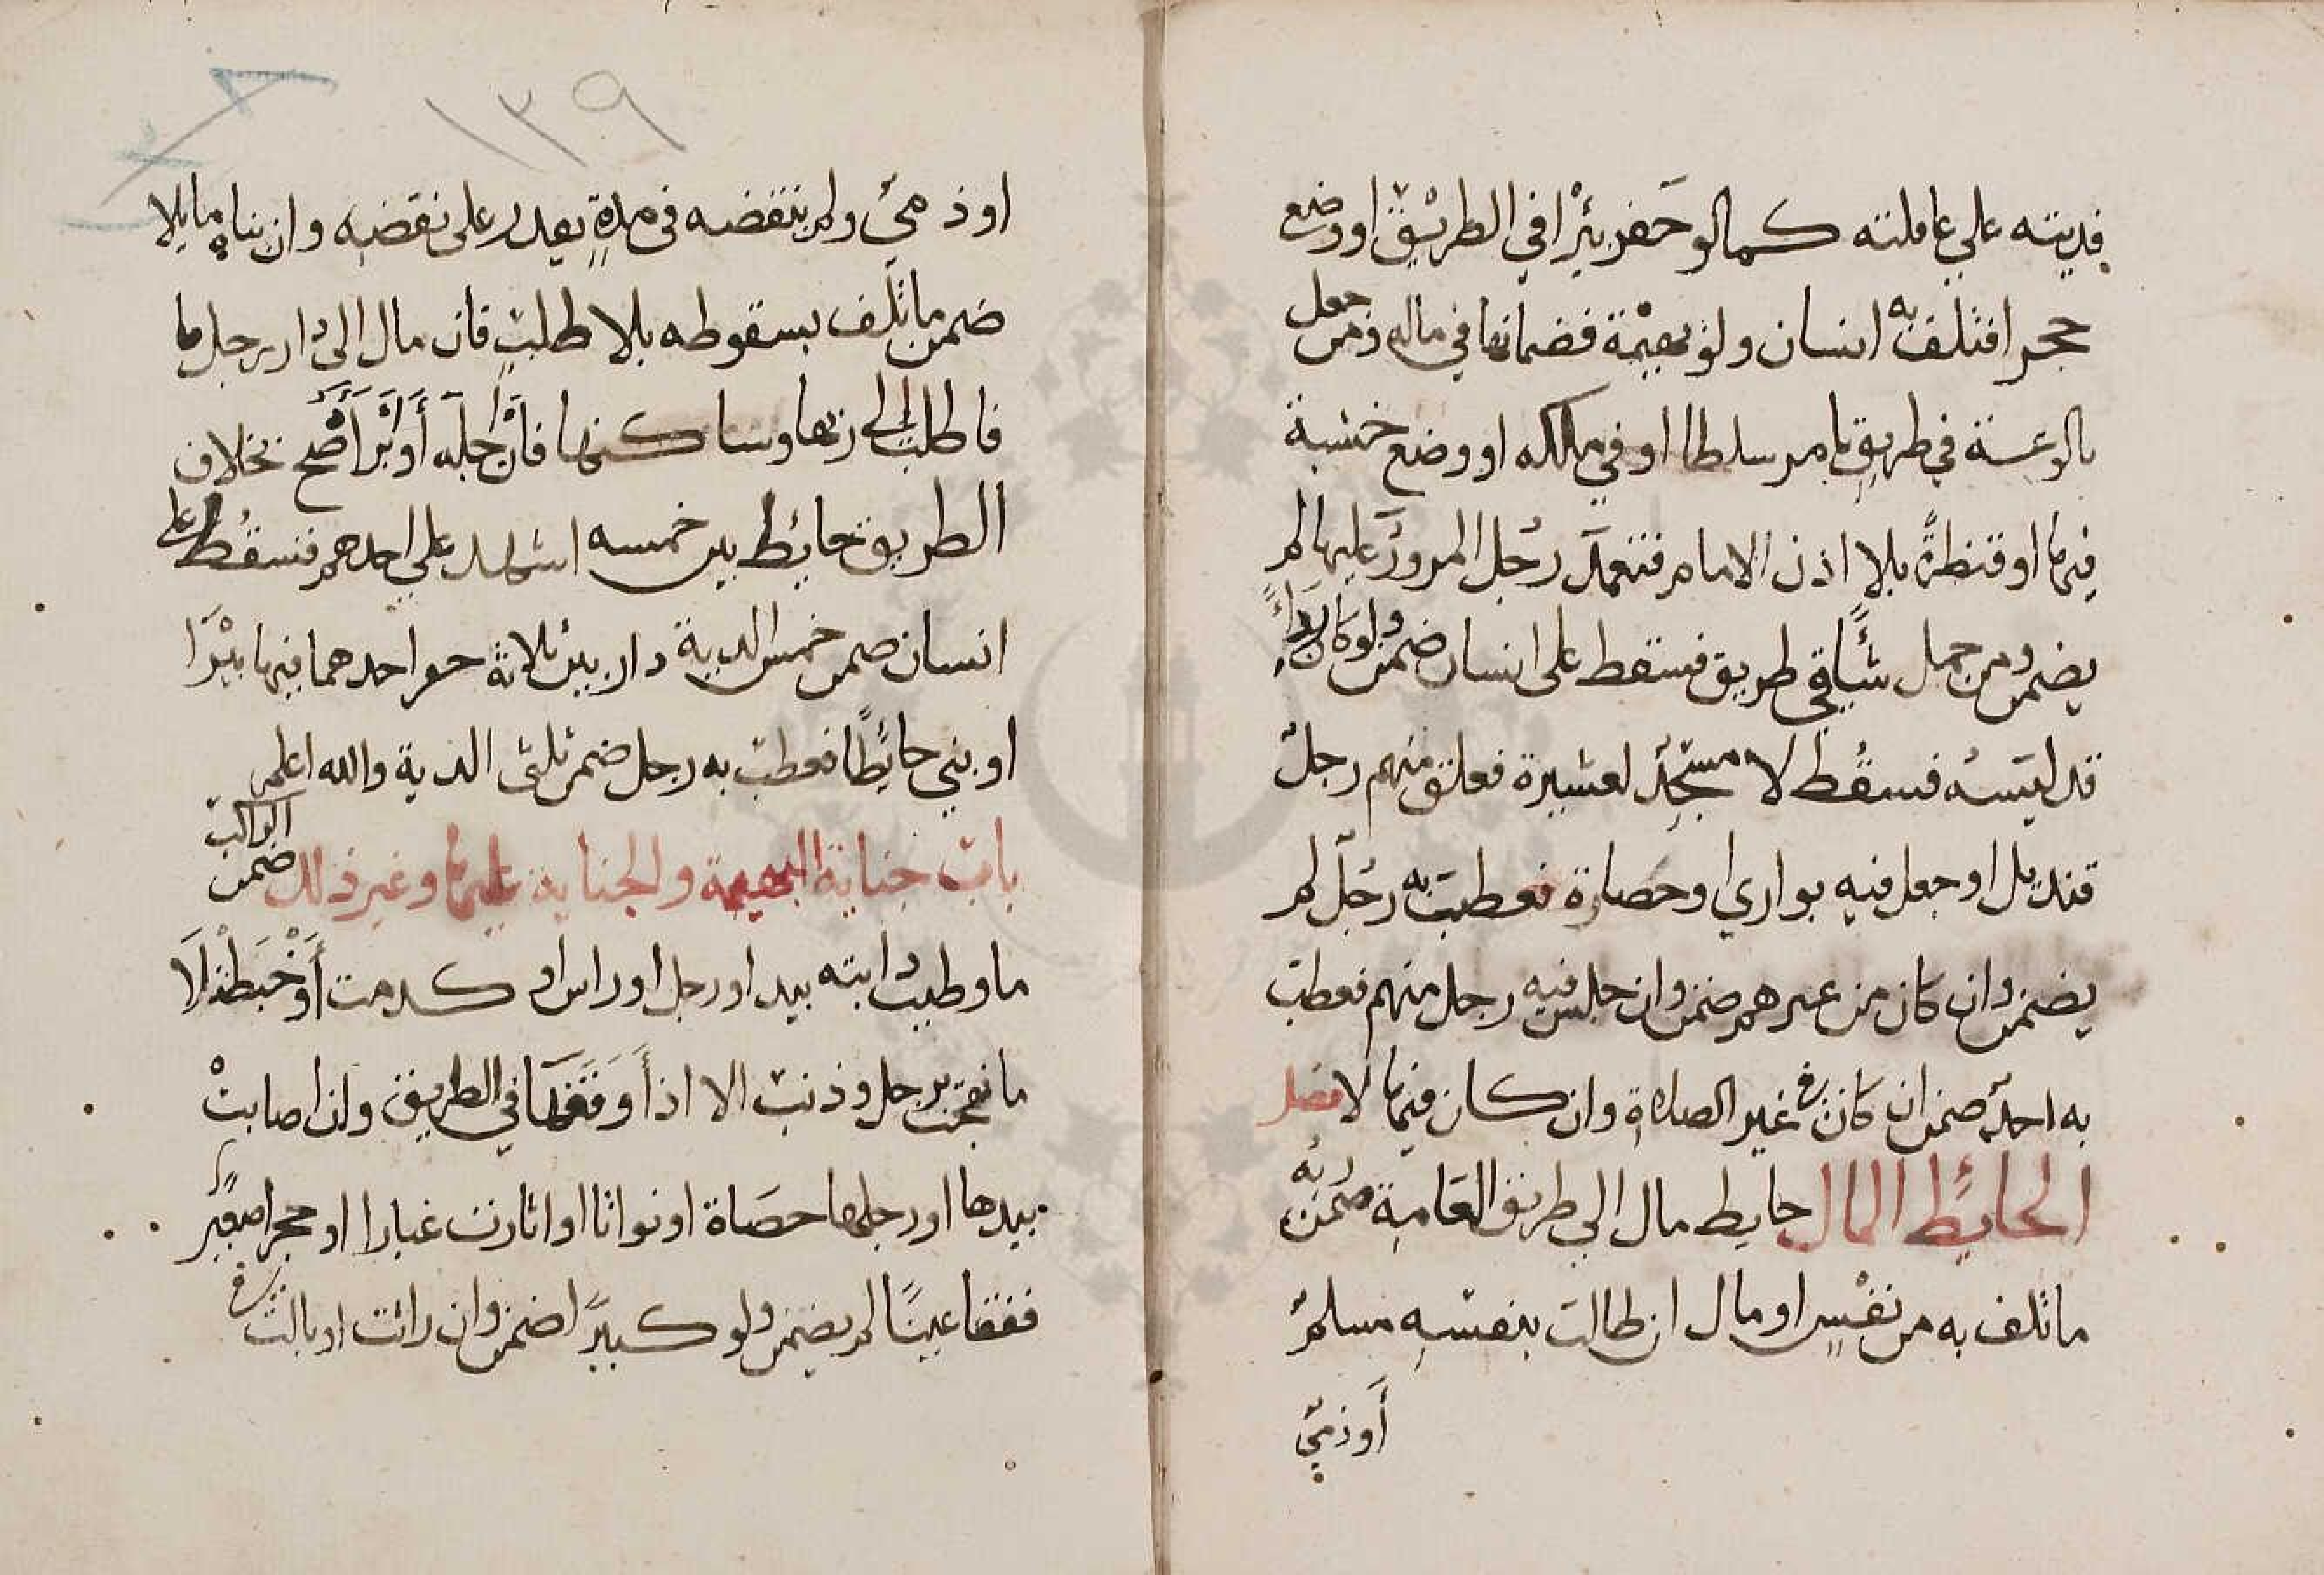 فديته علي عاقلته كما لو حفر بئرا في الطريق او وضع
حجرا فتلف به انسان ولو بهيمة فضمانها في ماله ومن جعل
بالوعة في طريق بامر سلطان او في ملكه او وضع خشبة
فيها او قنطرة بلا اذن الامام فتعمد رجل المرور عليها لم
يضمن ومن حمل شيأ في طريق فسقط على انسان ضمن ولو كان رداء
قد لبسه فسقط لا مسجد لعشيرة فعلق منهم رجل
قنديل او جعل فيه بواري او حصارة فعطب به رجل لم
يضمن وان كان من غيرهم ضمن وان جلس فيه رجل منهم فعطب
به احد ضمن ان كان في غير الصلاة وان كان فيها لا فصل
الحائط المال حايط مال الي طريق العامة ضمن ربه
ما تلف به من نفس او مال ان طالب بنقسه مسلم
أو ذمي
١٣٩
او ذمي ولم ينقضه في مدة يقدر على نقضه وان بناه مايلا
ضمن ما تلف بسقوطه بلا طلب فان مال الى دار رجل
فالطلب الى ربها وساكنها فان اجله أو ابرأ صح بخلاف
الطريق حايط بين خمسه اشهد علي احدهم فسقط على
انسان ضمن خمس الدية دار بين ثلاثة حفر احدهما فيها بيرا
او بني حائطا فعطب به رجل ضمن ثلثى الدية والله اعلم
باب جناية البهيمة والجناية عليها وغير ذلك ضمن الراكب
ما وطيت دابته بيد او رجل او راس او كدمت أو خبطت لا
ما نفحت برجل وذنب الا اذا أوقفها في الطريق وان اصابت
بيدها او رجلها حصاة او نواتا او اثارت غبارا او حجرا صغيرا
ففقا عينا لم يضمن ولو كبيرا ضمن وان راثت او بالت في